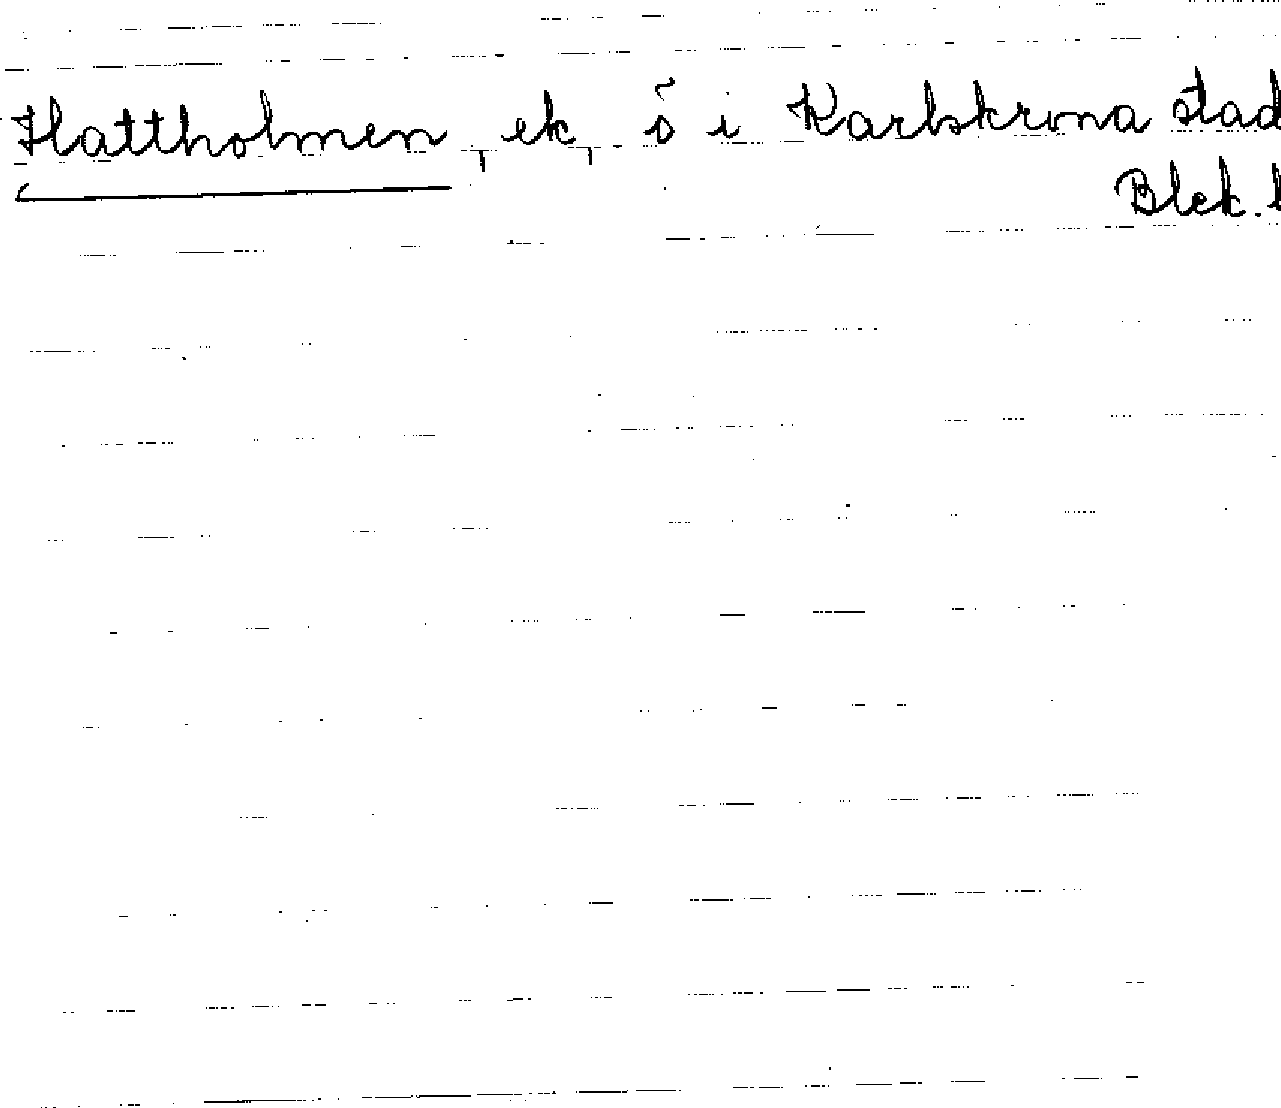 Hattholmen, ek, ö i Karlskrona stad
Blek. l